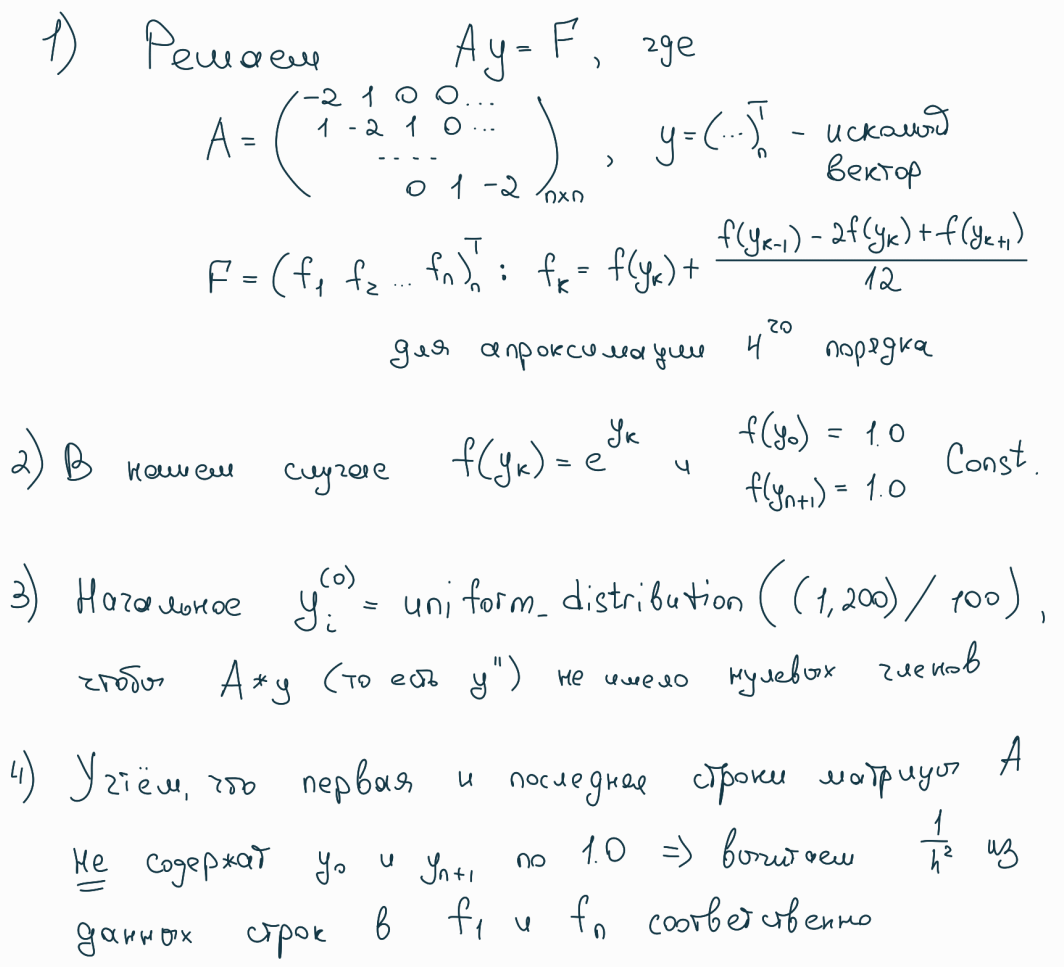 1) Решаем Ay = F, где
A = (-2 1 0 0 ...
1 -2 1 0 ...
....
0 1 -2)n×n, y = (...)ᵀn - искомый вектор
F = (f₁ f₂ ... fn)ᵀn : fк = f(yк) + (f(yк-1) - 2f(yк) + f(yк+1)) / 12
для апроксимации 4го порядка
2) В нашем случае f(yк) = e^yк и f(y₀) = 1.0
f(yn+1) = 1.0 Const.
3) Начальное yᵢ⁽⁰⁾ = uniform_distribution((1,200) / 100),
чтобы A*y (то есть y") не имело нулевых членов
4) Учтём, что первая и последнее строки матрицы A
не содержат y₀ и yn+1 по 1.0 => вычитаем 1/h² из
данных строк в f₁ и fn соответственно